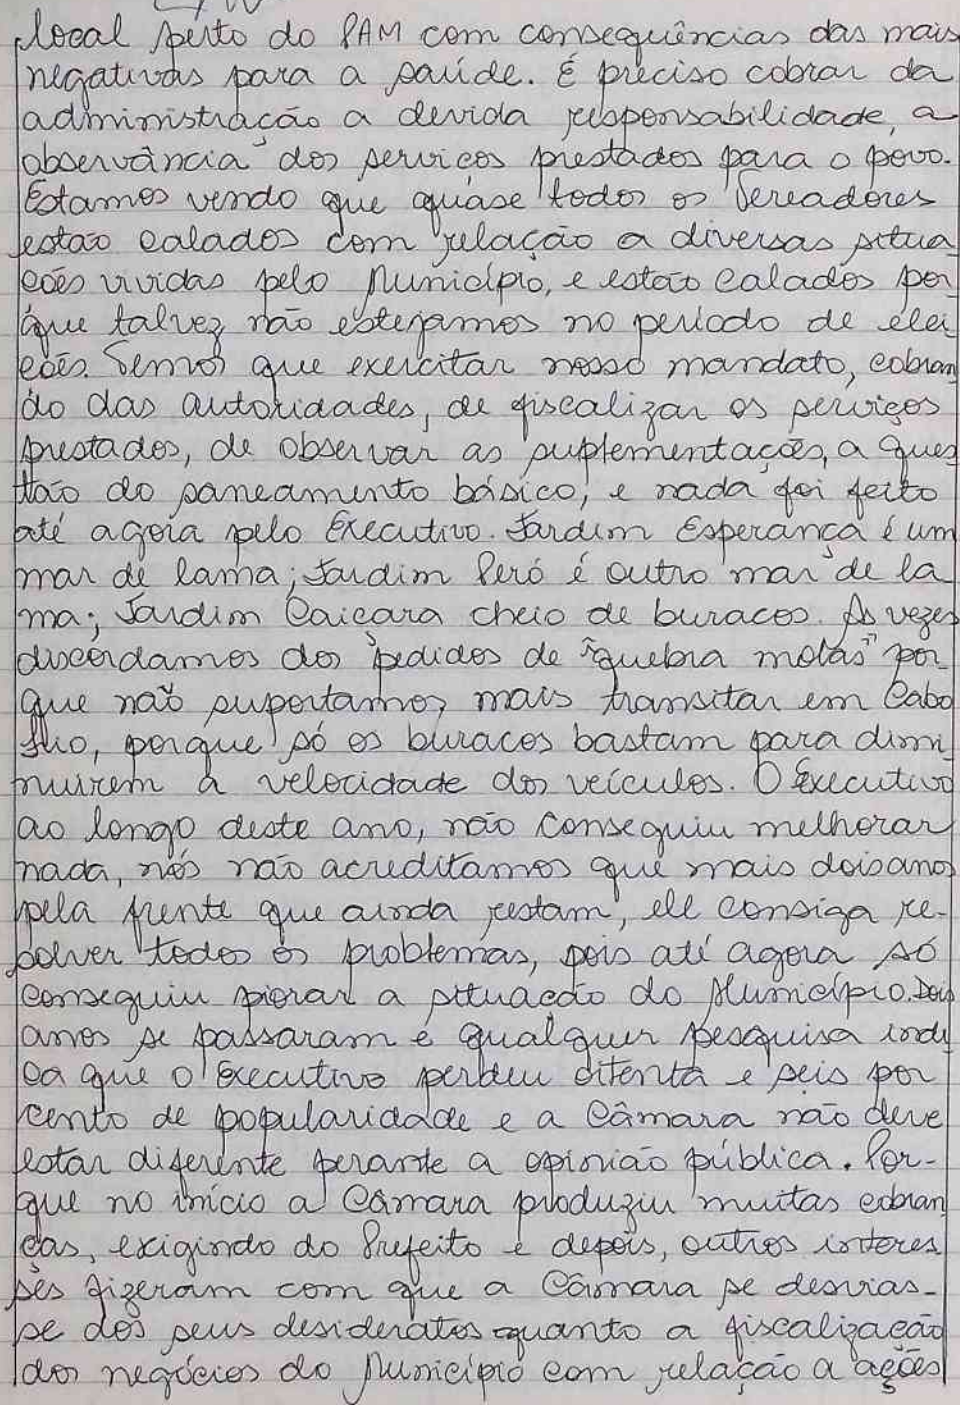 local perto do PAM com consequências das mais
negativas para a saúde. É preciso cobrar da
administração a devida responsabilidade, a
observância dos serviços prestados para o povo.
Estamos vendo que quáse todos os Vereadores
estão calados com relação a diversas situa
ções vividas pelo Município, e estão calados por
que talvez não estejamos no período de elei
ções. Temos que exercitar nosso mandato, cobran
do das autoridades, de fiscalizar os serviços
prestados, de observar as suplementações, a ques
tão do saneamento básico, e nada foi feito
até agora pelo Executivo. Jardim Esperança é um
mar de lama; Jardim Peró é outro mar de la
ma; Jardim Caiçara cheio de buracos. As vezes
discordamos dos pedidos de "quebra molas" por
que não suportamos mais transitar em Cabo
Frio, porque só os buracos bastam para dimi
nuirem a velocidade dos veículos. O Executivo
ao longo deste ano, não conseguiu melhorar
nada, nós não acreditamos que mais dois anos
pela frente que ainda restam, ele consiga re-
solver todos os problemas, pois até agora só
conseguiu piorar a situação do Município. Dois
anos se passaram e qualquer pesquisa indi
ca que o Executivo perdeu oitenta e seis por
cento de popularidade e a Câmara não deve
estar diferente perante a opinião pública. Por-
que no início a Câmara produziu muitas cobran
ças, exigindo do Prefeito e depois, outros interes
ses fizeram com que a Câmara se desvias-
se dos seus desideratos quanto a fiscalização
dos negócios do Município com relação a ações